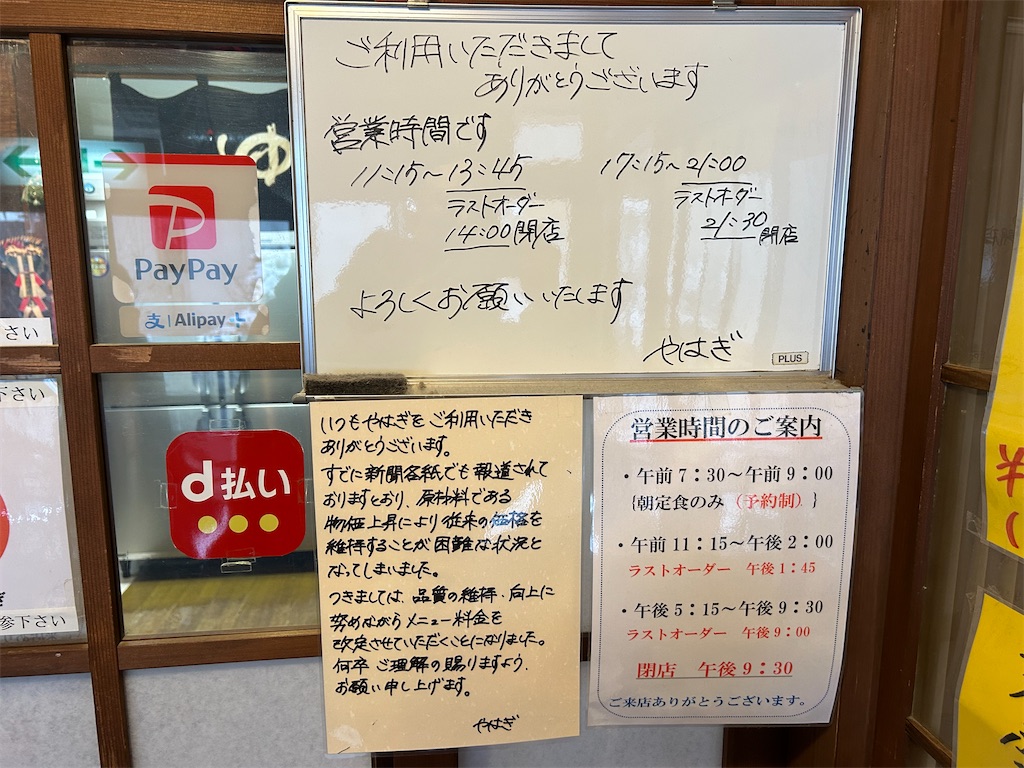 ご利用いただきまして
ありがとうございます
営業時間です
11:15~13:45
ラストオーダー
14:00閉店
17:15~21:00
ラストオーダー
21:30閉店
よろしくお願いいたします
やはぎ
PLUS
ゆ
PayPay
支 | Alipay
d払い
さい
下さい
参下さい
いつもやはぎをご利用いただき
ありがとうございます。
すでに新聞各紙でも報道されて
おりますとおり、原材料である
物価上昇により従来の価格を
維持することが困難な状況と
なってしまいました。
つきましては、品質の維持、向上に
努めながらメニュー料金を
改定させていただくことになりました。
何卒ご理解の賜りますよう、
お願い申し上げます。
やはぎ
営業時間のご案内
・午前 7:30~午前 9:00
{朝定食のみ(予約制)}
・午前 11:15~午後 2:00
ラストオーダー 午後 1:45
・午後 5:15~午後 9:30
ラストオーダー 午後 9:00
閉店 午後 9:30
ご来店ありがとうございます。
半